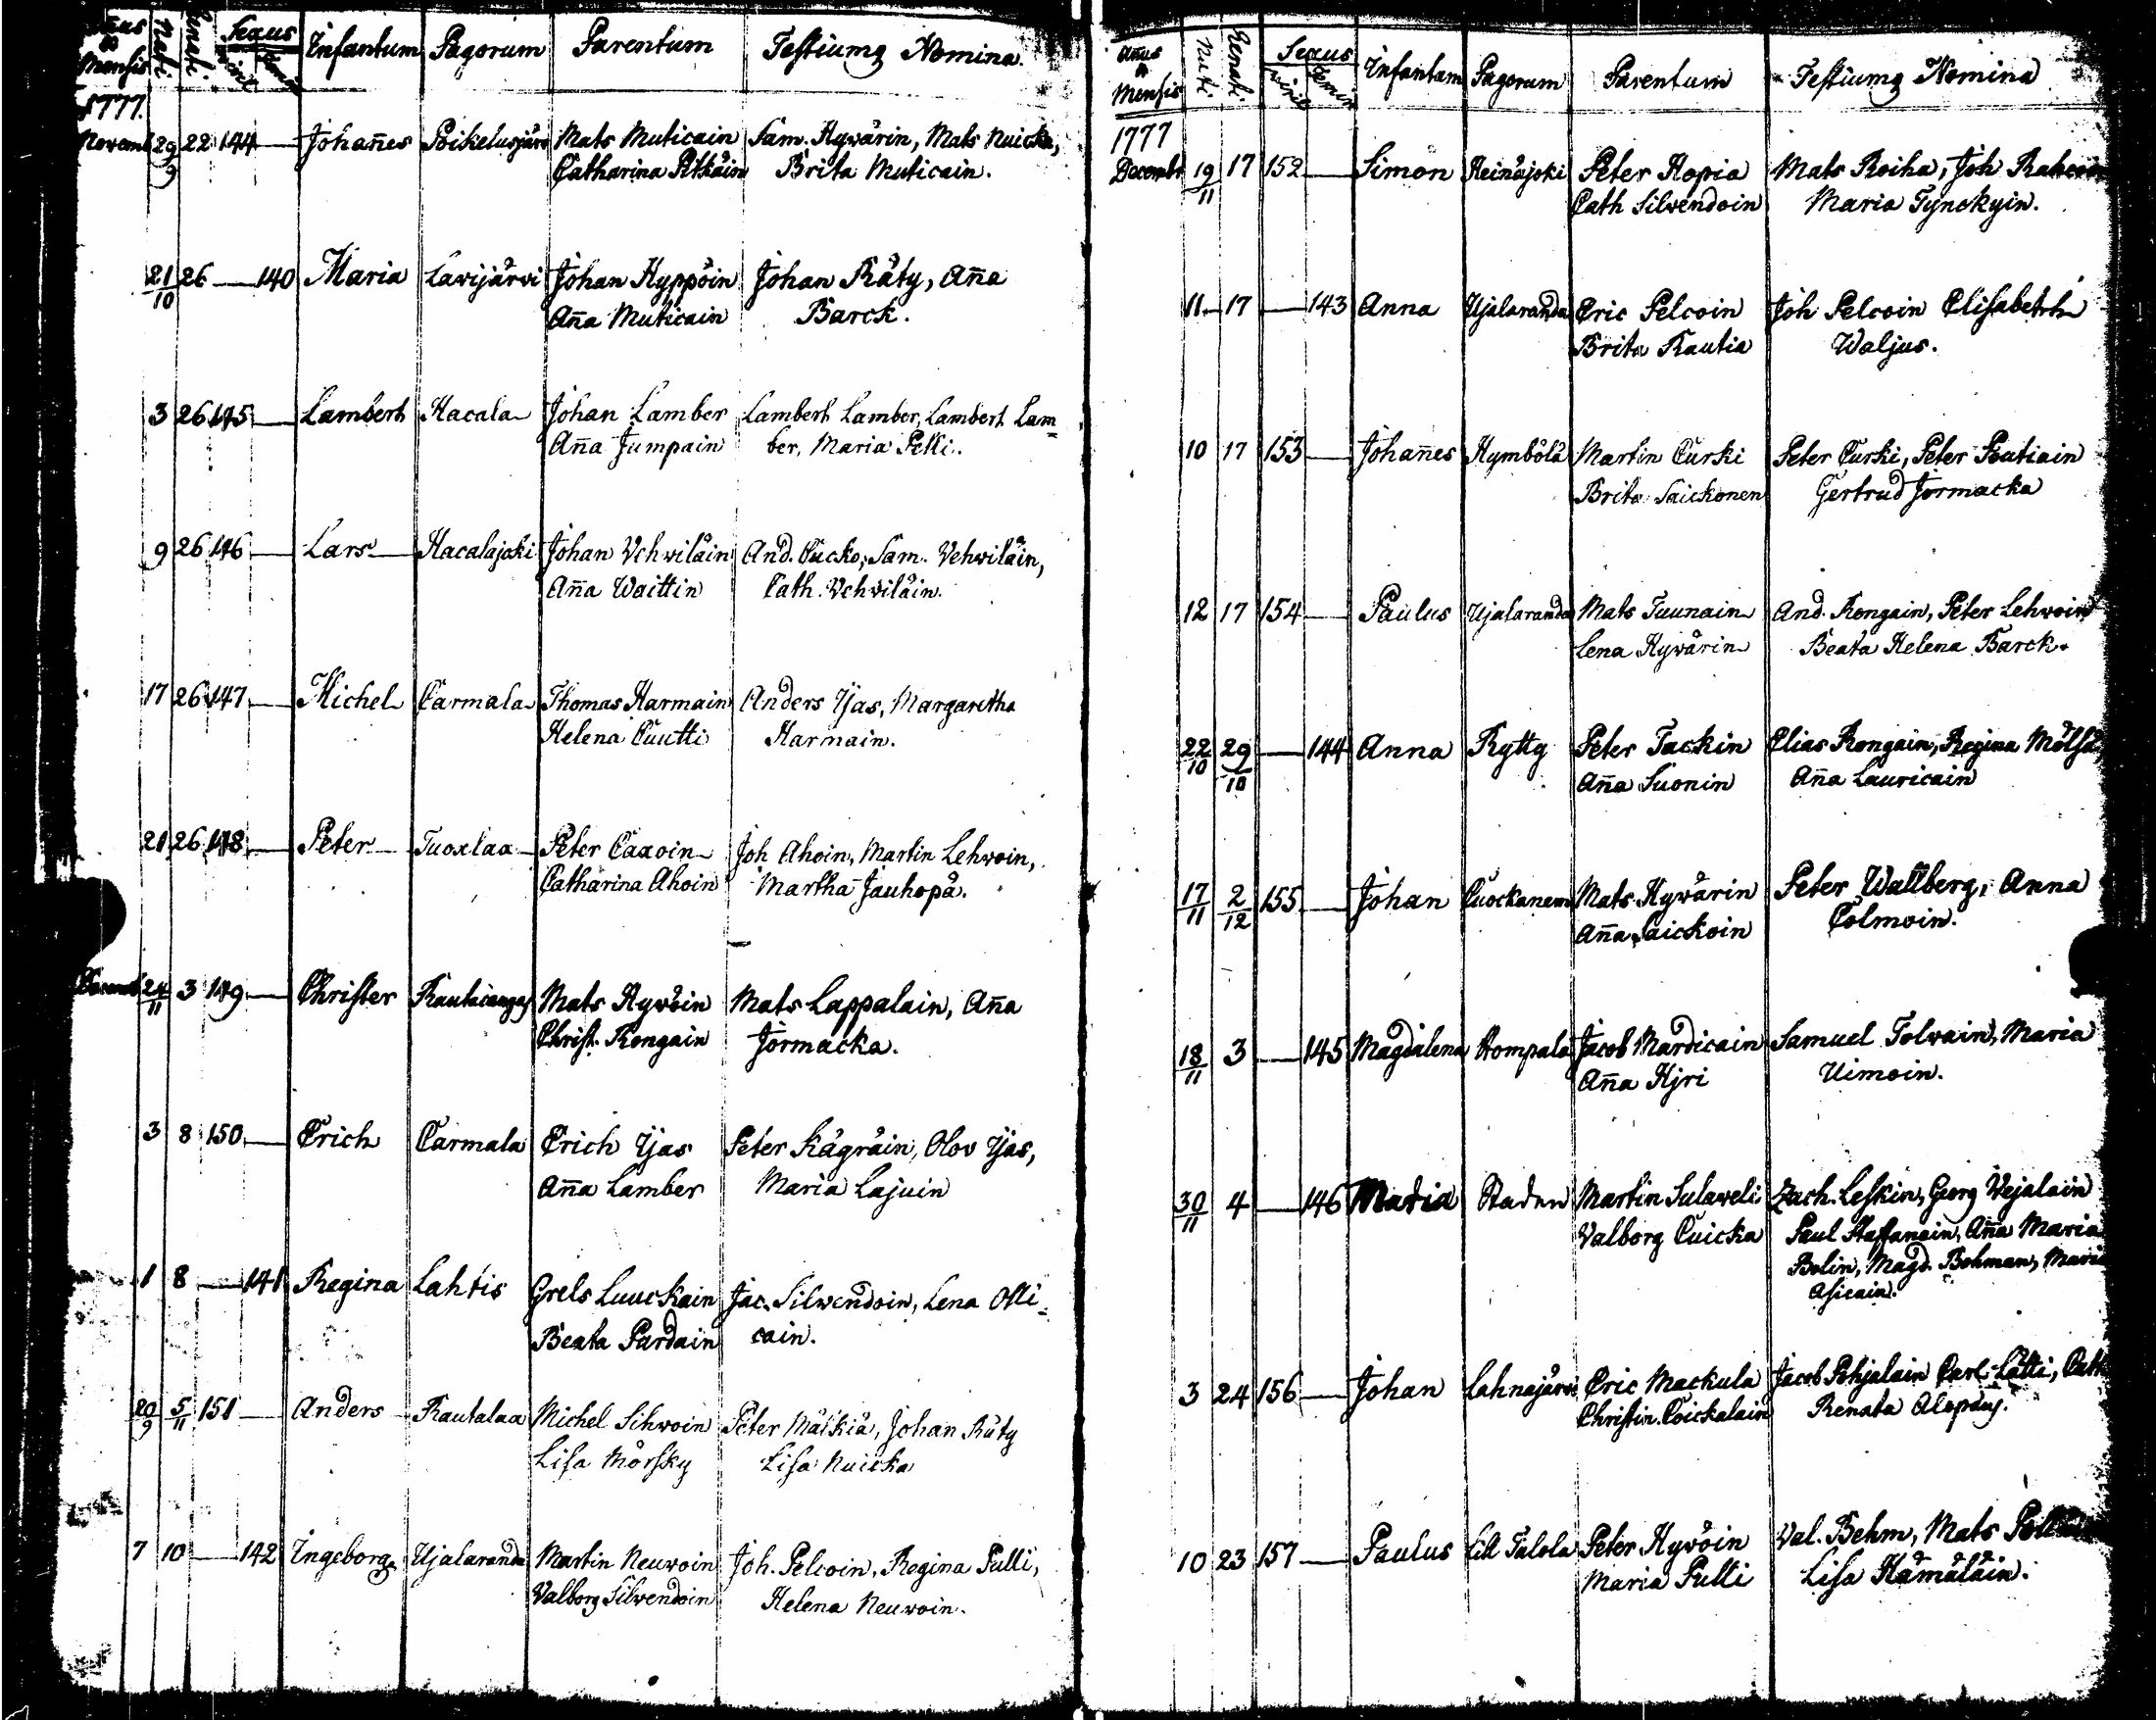 Mensis Nati Renati Sexus Infantum Pagorum Parentum Testiumq Nomina
1777.
Novemb 29/9 22 144 — Johañes Poikelusjärv Mats Muticain Sam. Hywärin, Mats Nuicka,
Catharina Pitkäin Brita Muticain.
21/10 26 — 140 Maria Lavijärvi Johan Hyppöin Johan Räty, Aña
Aña Muticain Barck.
3 26 145 — Lambert Hacala Johan Lamber Lambert Lamber, Lambert Lam=
Aña Jumpain ber, Maria Pelli.
9 26 146 — Lars Hacalajoki Johan Vehviläin And. Cucko, Sam. Vehwiläin,
Aña Waittin Cath. Vehviläin.
17 26 147 — Michel Carmala Thomas Harmain Anders Yjas, Margaretha
Helena Cuutti Harmain.
21 26 148 — Peter Tuoxlax Peter Caxoin Joh Ahoin, Martin Lehvoin,
Catharina Ahoin Martha Jauhopä.
24/11 3 149 — Christer Rautacangas Mats Hywöin Mats Lappalain, Aña
Christ. Rongain Jormacka.
3 8 150 — Erich Carmala Erich Yjas Peter Kägräin, Olov Yjas,
Aña Lamber Maria Lajuin
1 8 — 141 Regina Lahtis Grels Luuckain Jac. Silwendoin, Lena Olli=
Beata Pardain cain.
20/9 5/11 151 — Anders Rautalax Michel Sihwoin Peter Mälkiä, Johan Räty
Lisa Mörsky Lisa Nuicka
7 10 — 142 Ingeborg Ujalaranda Martin Neuwoin Joh. Pelcoin, Regina Pulli,
Valborg Silvendoin Helena Neuwoin.
Añus & Mensis Nati Renati Sexus Infantum Pagorum Parentum Testiumq Nomina
1777
Decembr 19/11 17 152 — Simon Heinäjoki Peter Hopia Mats Roiha, Joh
Cath Silvendoin Maria Tynckyin.
11 17 — 143 Anna Ujalaranda Eric Pelcoin Joh Pelcoin Elisabeth
Brita Rautia Waljus.
10 17 153 — Johañes Hymbölä Martin Curki Peter Curki, Peter Poutiain
Brita Saickonen Gertrud Jormacka
12 17 154 — Paulus Ujalaranda Mats Taunain And. Rongain, Peter Lehvoin
Lena Hyvärin Beata Helena Barck.
22/10 29/10 — 144 Anna Rytty Peter Tackin Elias Rongain, Regina Mölsä
Aña Suonin Aña Lauricain
17/11 2/12 155 — Johan Cuockanem Mats Hywärin Peter Wallberg, Anna
Aña Saickoin Colmoin.
18/11 3 — 145 Magdalena Hompala Jacob Mardicain Samuel Tolvain, Maria
Aña Hjri Uimoin.
30/11 4 — 146 Maria Staden Martin Sulaveli Zach. Leskin, Georg Vejalain
Valborg Cuicka Paul Staffanain, Aña Maria
Bolin, Magd. Bohman,
Asicain.
3 24 156 — Johan Lahnajärvi Eric Mackula Jacob Pohjalain Carl Lätti,
Christin. Coickalain Renata
10 23 157 — Paulus Lill Talola Peter Hyvöin Val. Behm, Mats
Maria Pulli Lisa Hämäläin.